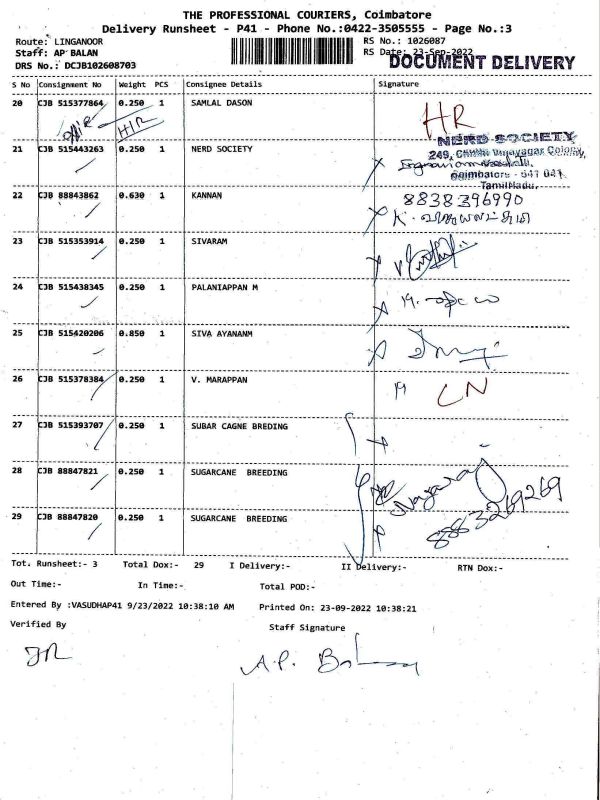 THE PROFESSIONAL COURIERS, Coimbatore
Delivery Runsheet - P41 - Phone No.:0422-3505555 - Page No.:3
Route: LINGANOOR RS No.: 1026087
Staff: AP BALAN RS Date: 23-Sep-2022
DOCUMENT DELIVERY
DRS No.: DCJB102608703
S No Consignment No Weight PCS Consignee Details Signature
20 CJB 515377864 0.250 1 SAMLAL DASON HR
H/R
21 CJB 515443263 0.250 1 NERD SOCIETY
NERD SOCIETY
249, Vinayagar Colony,
Coimbatore - 641 041.
TamilNadu.
22 CJB 88843862 0.630 1 KANNAN 8838396990
23 CJB 515353914 0.250 1 SIVARAM
24 CJB 515438345 0.250 1 PALANIAPPAN M
25 CJB 515420206 0.850 1 SIVA AYANANM
26 CJB 515378384 0.250 1 V. MARAPPAN LN
27 CJB 515393707 0.250 1 SUBAR CAGNE BREDING
28 CJB 88847821 0.250 1 SUGARCANE BREEDING
Nagaraj
8883269269
29 CJB 88847820 0.250 1 SUGARCANE BREEDING
Tot. Runsheet:- 3 Total Dox:- 29 I Delivery:- II Delivery:- RTN Dox:-
Out Time:- In Time:- Total POD:-
Entered By :VASUDHAP41 9/23/2022 10:38:10 AM Printed On: 23-09-2022 10:38:21
Verified By Staff Signature
JR A.P. Balan